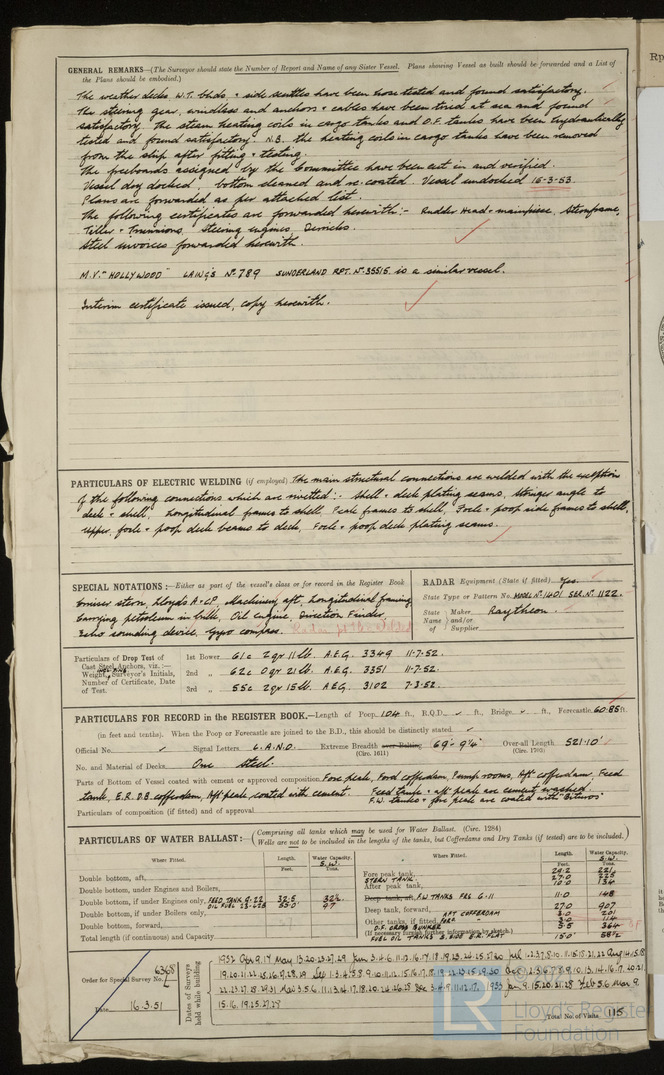 GENERAL REMARKS—(The Surveyor should state the Number of Report and Name of any Sister Vessel. Plans showing Vessel as built should be forwarded and a List of
the Plans should be embodied.)
The weather decks, W.T. bhds. & side scuttles have been hose tested and found satisfactory.
The steering gear, windlass and anchors & cables have been tried at sea and found
satisfactory. The steam heating coils in cargo tanks and O.F. tanks have been hydraulically
tested and found satisfactory. N.B. the heating coils in cargo tanks have been removed
from the ship after fitting & testing.
The freeboards assigned by the Committee have been cut in and verified.
Vessel dry docked, bottom cleaned and re-coated. Vessel undocked 16-3-53.
Plans are forwarded as per attached list.
The following certificates are forwarded herewith:- Rudder Head & mainpiece, Sternframe,
Tiller & Trunnions, Steering engines, Derricks.
Steel invoices forwarded herewith.
M.V. "HOLLYWOOD" LAING'S No. 789 SUNDERLAND RPT. No. 35515 is a similar vessel.
Interim certificate issued, copy herewith.
PARTICULARS OF ELECTRIC WELDING (if employed) The main structural connections are welded with the exception
of the following connections which are rivetted:- Shell & deck plating seams, Stringer angle to
deck & shell, Longitudinal frames to shell, Peak frames to shell, Focle & poop side frames to shell,
upper, focle & poop deck beams to deck, Focle & poop deck plating seams.
SPECIAL NOTATIONS:—Either as part of the vessel's class or for record in the Register Book
Cruiser stern, Lloyds A & CP, Machinery aft, Longitudinal framing
Carrying petroleum in bulk, Oil engine, Direction Finder
Echo sounding device, Gyro compass.
RADAR Equipment (State if fitted) Yes.
State Type or Pattern No. MODEL No. 1401 SER. No. 1122.
State Name of Maker and/or Supplier Raytheon.
Particulars of Drop Test of Cast Steel Anchors, viz.:—
Weight, Surveyor's Initials,
Number of Certificate, Date
of Test.
1st Bower 61c 2qr 11lb. A.E.G. 3349 11-7-52.
2nd " 62c 0qr 21lb. A.E.G. 3351 11-7-52.
3rd " 55c 2qr 15lb A.E.G. 3102 7-3-52.
PARTICULARS FOR RECORD in the REGISTER BOOK.—Length of Poop 104 ft., R.Q.D. ft., Bridge ft., Forecastle 60.85 ft.
(in feet and tenths). When the Poop or Forecastle are joined to the B.D., this should be distinctly stated
Official No. Signal Letters Extreme Breadth over Belting (Circ. 1611) 69'-9¼" Over-all Length (Circ. 1703) 521.10'
No. and Material of Decks One steel.
Parts of Bottom of Vessel coated with cement or approved composition Fore peak, Ford cofferdam, Pump rooms, Aft cofferdam, Feed
tank, E.R. D.B. cofferdam, Aft peak, coated with cement. Feed tank & aft peak are cement washed.
F.W. tanks & fore peak are coated with "Bituros"
Particulars of composition (if fitted) and of approval
PARTICULARS OF WATER BALLAST:— (Comprising all tanks which may be used for Water Ballast. (Circ. 1284)
Wells are not to be included in the lengths of the tanks, but Cofferdams and Dry Tanks (if tested) are to be included.)
Where Fitted. Length. Feet. Water Capacity. S.W. Tons.
Double bottom, aft,
Double bottom, under Engines and Boilers,
Double bottom, if under Engines only, FEED TANK 9-22 32.5
OIL FUEL 23-28 97
Double bottom, if under Boilers only,
Double bottom, forward,
Total length (if continuous) and Capacity
Where Fitted. Length. Feet. Water Capacity. S.W. Tons.
Fore peak tank,
STERN TANK
After peak tank, 10.0 134
Deep tank, aft, F.W TANKS FRS 6-11 11.0 148
Deep tank, forward, 27.0 907
Other tanks, if fitted, AFT COFFERDAM 3.0 201
FORD 3.0 114
O.F. CROSS BUNKER 5.5 364
(If necessary furnish further information by sketch.)
FUEL OIL TANKS S. SIDE E.R. FLAT 15.0
Order for Special Survey No. 6368
Date 16.3.51
Dates of Surveys held while building
Total No. of Visits 115
Lloyd's Register
Foundation